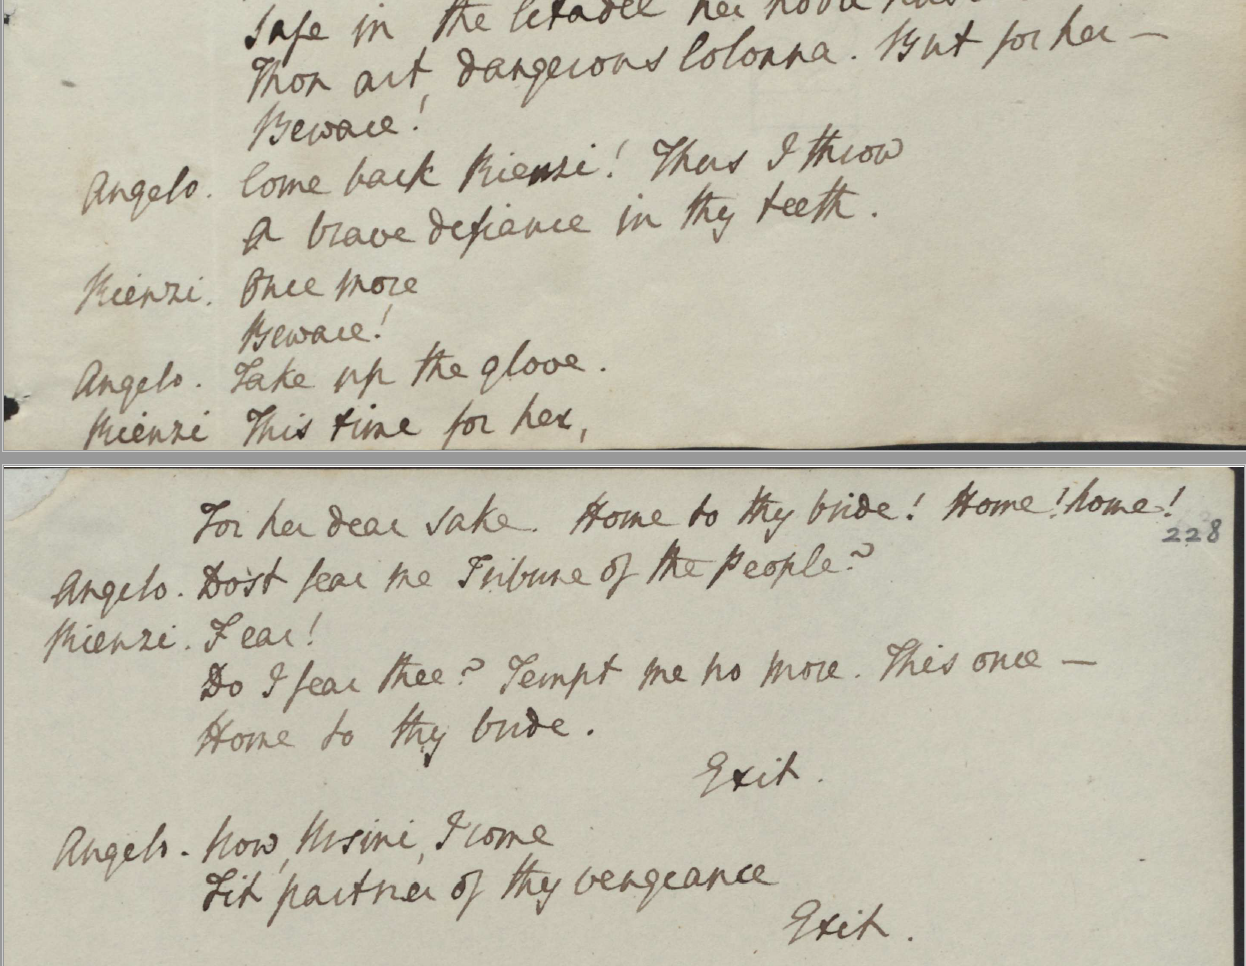 Safe in the Citadel her noble
Thou art, dangerous Colonna. But for her —
Beware!
Angelo. Come back Rienzi! Thus I throw
A brave defiance in thy teeth.
Rienzi. Once more
Beware!
Angelo. Take up the glove.
Rienzi This time for her,
For her dear sake. Home to thy bride! Home! home!
228
Angelo. Dost fear me Tribune of the People?
Rienzi. Fear!
Do I fear thee? Tempt me no more. This once —
Home to thy bride.
Exit.
Angelo. Now, Ursini, I come
Fit partner of thy vengeance
Exit.